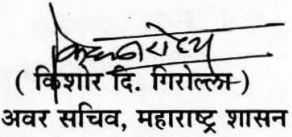 ( किशोर दि. गिरोल्ला )
अवर सचिव, महाराष्ट्र शासन